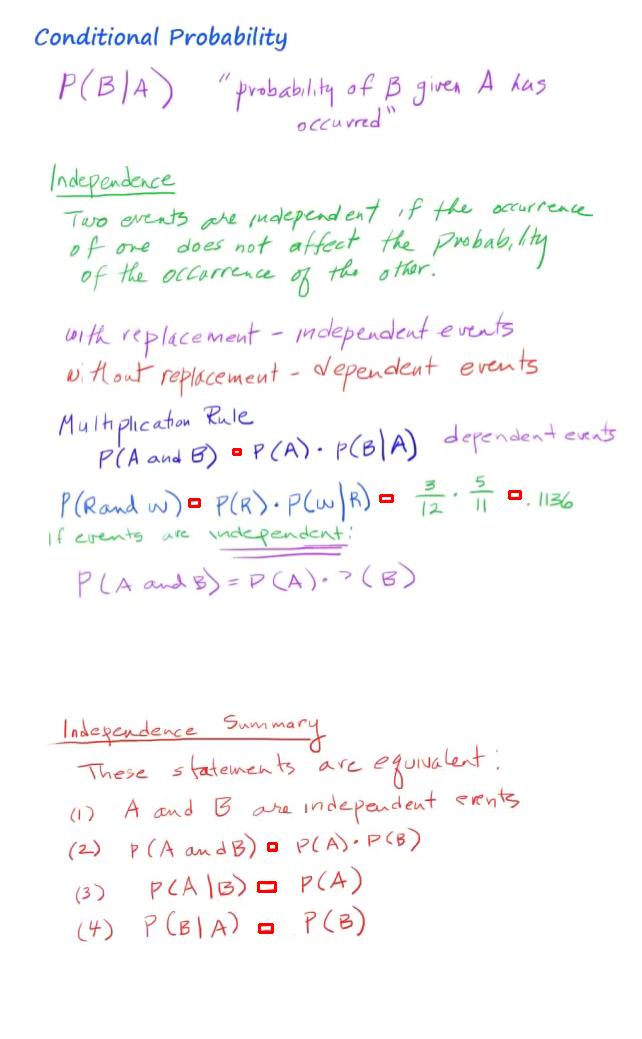 Conditional Probability
P(B|A) "probability of B given A has
occurred"
Independence
Two events are independent if the occurrence
of one does not affect the probability
of the occurrence of the other.
with replacement - independent events
without replacement - dependent events
Multiplication Rule
P(A and B) P(A) · P(B|A) dependent events
P(R and W) P(R) · P(W|R) 3/12 · 5/11 .1136
if events are independent:
P(A and B) = P(A) · P(B)
Independence Summary
These statements are equivalent:
(1) A and B are independent events
(2) P(A and B) P(A) · P(B)
(3) P(A|B) P(A)
(4) P(B|A) P(B)